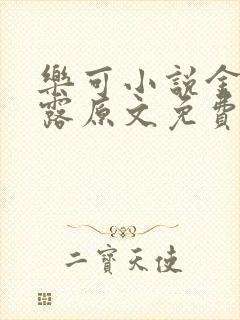 樂可小說金
露原文免費
二寶天使